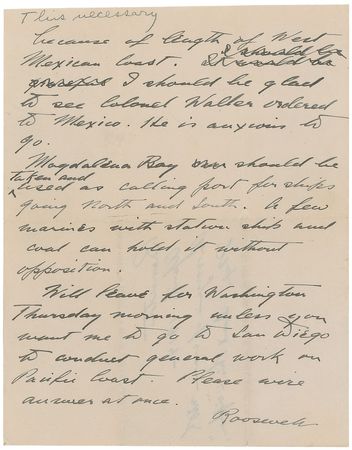 This necessary
because of length of West
Mexican Coast. I should be
I should be glad
to see Colonel Waller ordered
to Mexico. He is anxious to
go.
Magdalena Bay should be
taken and
used as calling port for ships
going North and South. A few
marines with station ship and
coal can hold it without
opposition.
Will leave for Washington
Thursday morning unless you
want me to go to San Diego
to conduct general work on
Pacific Coast. Please wire
answer at once.
Roosevelt